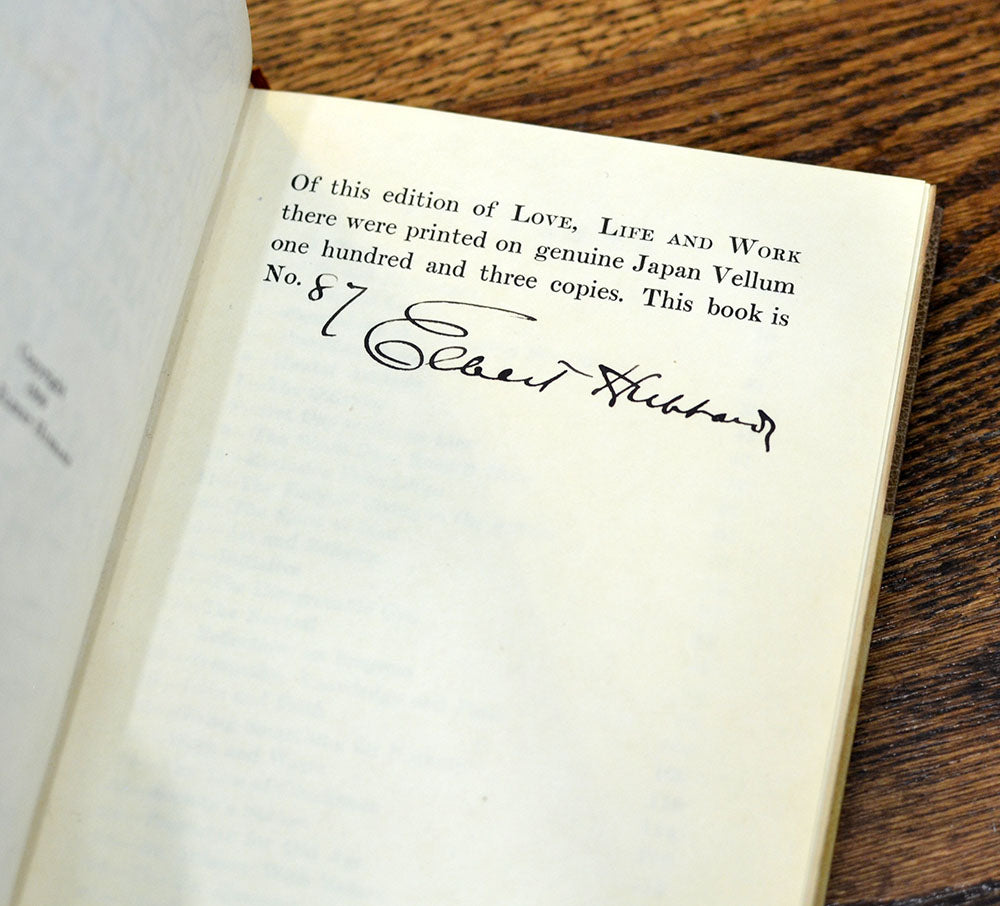 Of this edition of LOVE, LIFE AND WORK
there were printed on genuine Japan Vellum
one hundred and three copies. This book is
No. 87 Elbert Hubbard